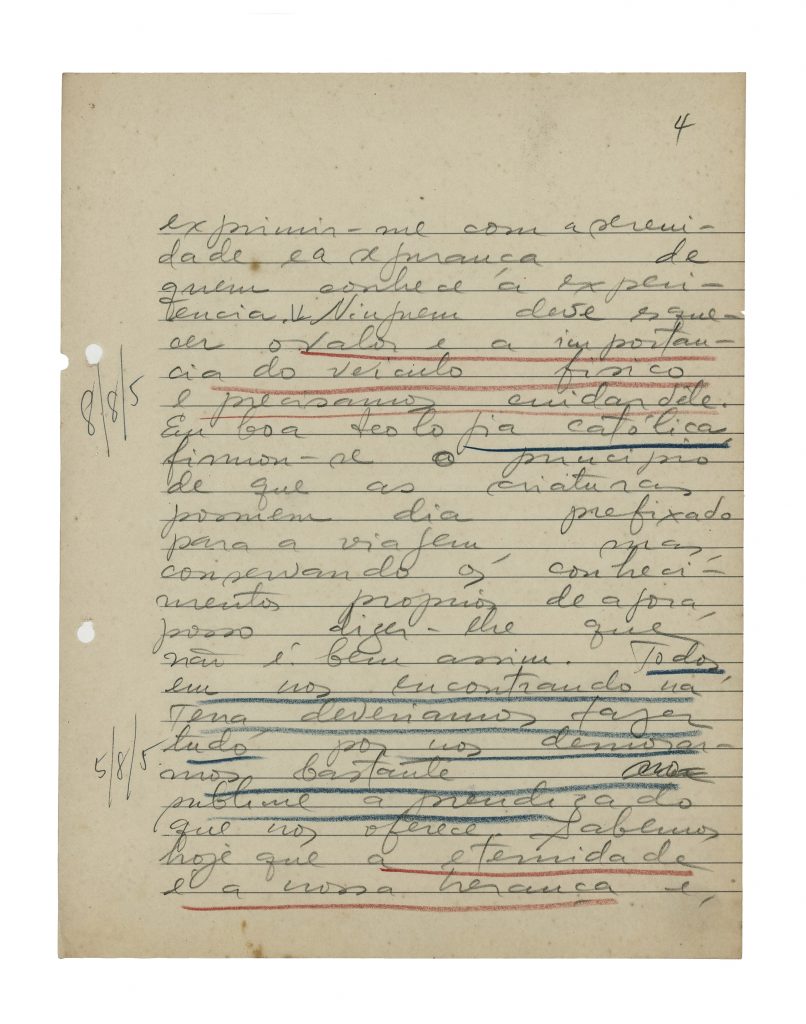 4
exprimir-me com a sereni-
dade e a segurança de
quem conhece a experi-
ência. Ninguem deve esque-
cer o valor e a importan-
cia do veículo físico
8/8/5
e precisamos cuidar dêle.
Em boa teologia católica,
firmou-se o principio
de que as criaturas
possuem dia prefixado
para a viagem, mas,
conservando os conheci-
mentos proprios de agora,
posso dizer-lhe que
não é bem assim. Todos,
em nos encontrando na
Terra deveriamos fazer
tudo por nos demorar-
5/8/5
mos bastante no
sublime aprendizado
que nos oferece. Sabemos
hoje que a eternidade
é a nossa herança e,